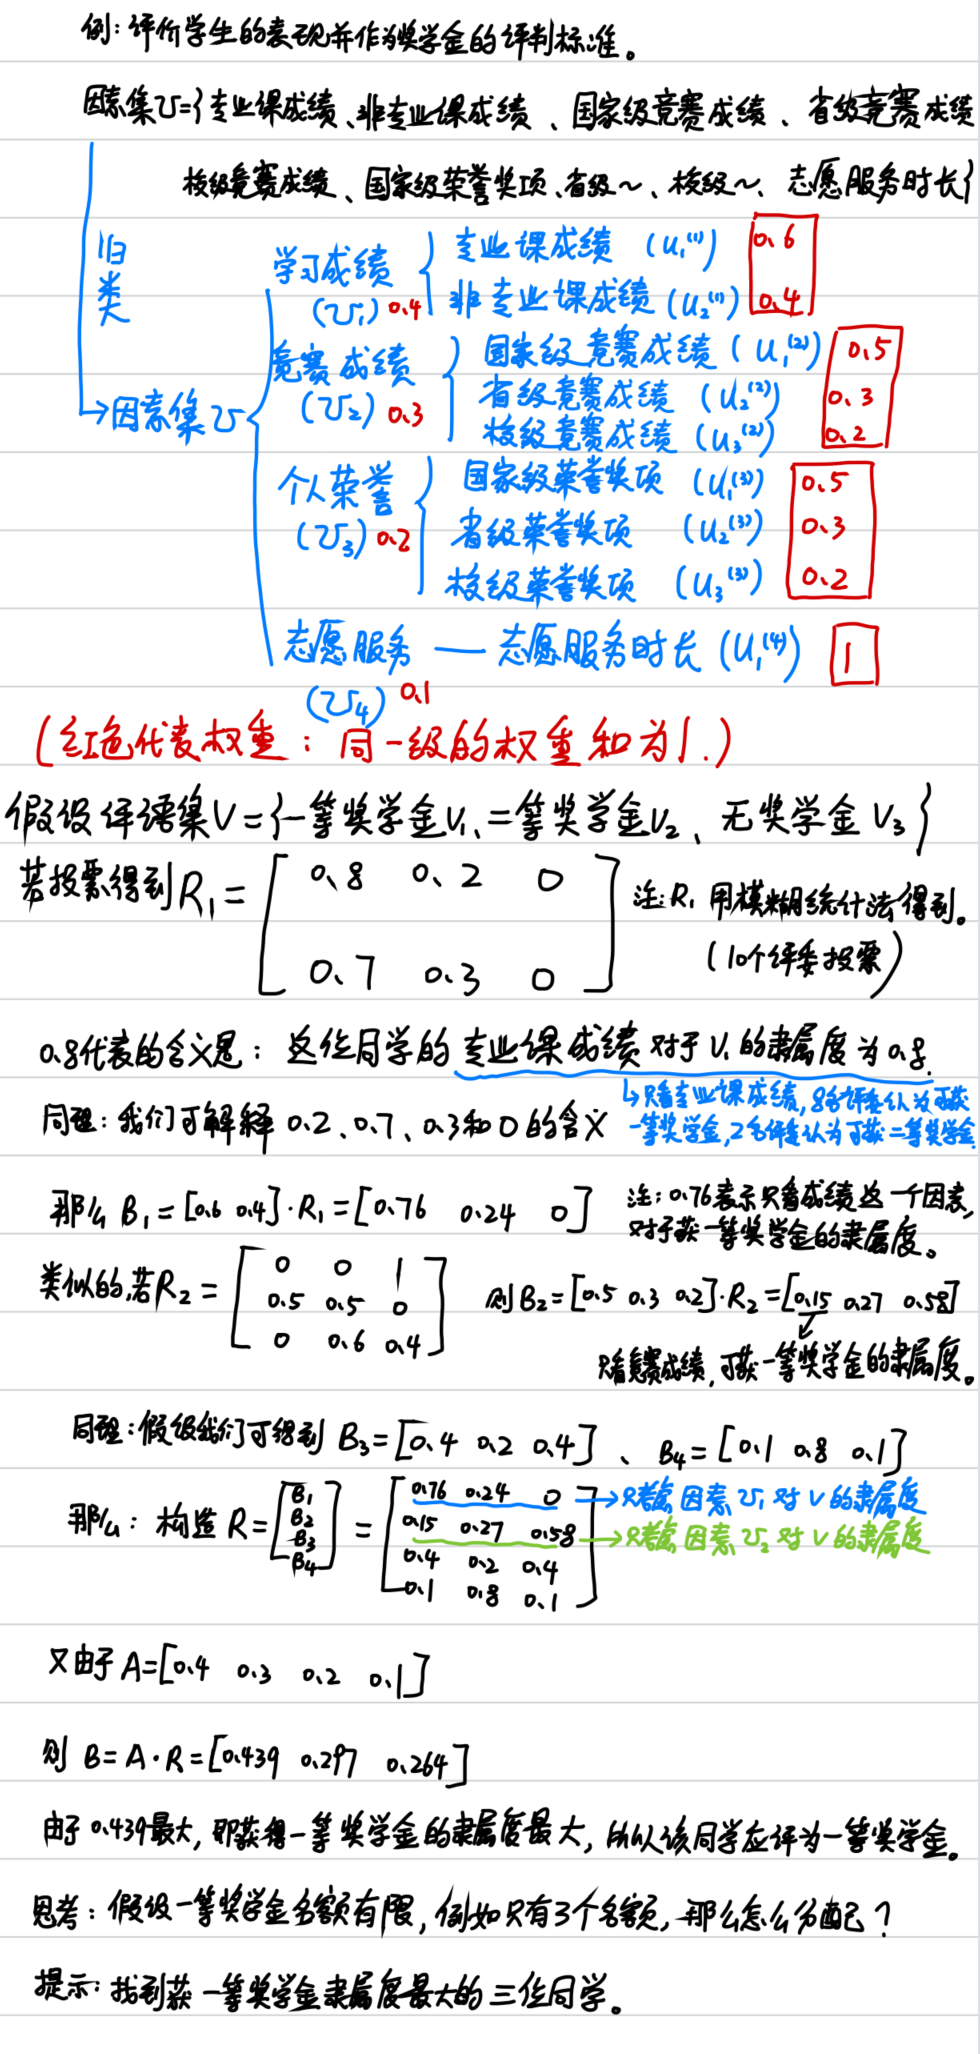 例：评价学生的表现并作为奖学金的评判标准。
因素集U={专业课成绩、非专业课成绩、国家级竞赛成绩、省级竞赛成绩
校级竞赛成绩、国家级荣誉奖项、省级~、校级~、志愿服务时长}
归类
→因素集U
学习成绩 (U₁) 0.4
专业课成绩 (u₁⁽¹⁾) 0.6
非专业课成绩 (u₂⁽¹⁾) 0.4
竞赛成绩 (U₂) 0.3
国家级竞赛成绩 (u₁⁽²⁾) 0.5
省级竞赛成绩 (u₂⁽²⁾) 0.3
校级竞赛成绩 (u₃⁽²⁾) 0.2
个人荣誉 (U₃) 0.2
国家级荣誉奖项 (u₁⁽³⁾) 0.5
省级荣誉奖项 (u₂⁽³⁾) 0.3
校级荣誉奖项 (u₃⁽³⁾) 0.2
志愿服务 — 志愿服务时长 (u₁⁽⁴⁾) 1
(U₄) 0.1
(红色代表权重：同一级的权重和为1.)
假设评语集V={一等奖学金V₁、二等奖学金V₂、无奖学金V₃}
若投票得到R₁=
[0.8 0.2 0
0.7 0.3 0]
注:R₁用模糊统计法得到。
(10个评委投票)
0.8代表的含义是：这位同学的专业课成绩对于V₁的隶属度为0.8.
↳只看专业课成绩,8名评委认为可获
一等奖学金,2名评委认为可获二等奖学金
同理：我们可解释0.2、0.7、0.3和0的含义
那么B₁=[0.6 0.4]·R₁=[0.76 0.24 0]
注：0.76表示只看成绩这一个因素,
对于获一等奖学金的隶属度。
类似的,若R₂=
[0 0 1
0.5 0.5 0
0 0.6 0.4]
则B₂=[0.5 0.3 0.2]·R₂=[0.15 0.27 0.58]
只看竞赛成绩,可获一等奖学金的隶属度。
同理：假设我们可得到B₃=[0.4 0.2 0.4]、B₄=[0.1 0.8 0.1]
那么：构造R=
[B₁
B₂
B₃
B₄]
=
[0.76 0.24 0 →只考虑因素U₁对V的隶属度
0.15 0.27 0.58 →只考虑因素U₂对V的隶属度
0.4 0.2 0.4
0.1 0.8 0.1]
又由于A=[0.4 0.3 0.2 0.1]
则B=A·R=[0.439 0.297 0.264]
由于0.439最大,即获得一等奖学金的隶属度最大,所以该同学应评为一等奖学金。
思考：假设一等奖学金名额有限,例如只有3个名额,那么怎么分配?
提示：找到获一等奖学金隶属度最大的三位同学。